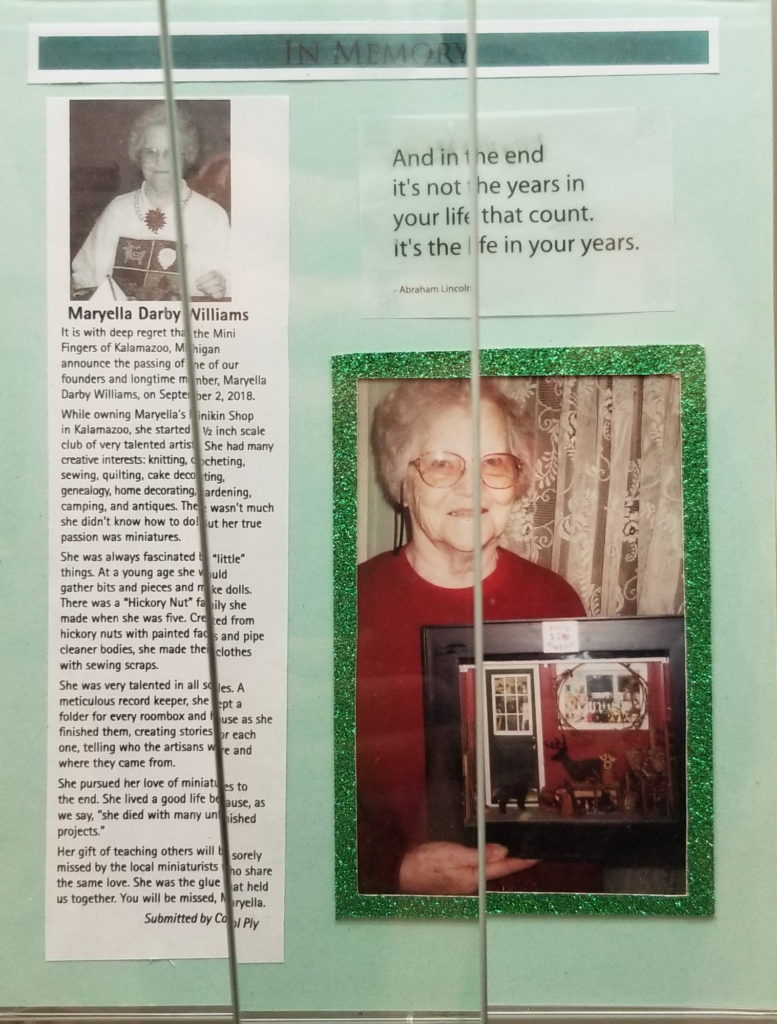 IN MEMORY
Maryella Darby Williams
It is with deep regret that the Mini
Fingers of Kalamazoo, Michigan
announce the passing of one of our
founders and longtime member, Maryella
Darby Williams, on September 2, 2018.
While owning Maryella's Minikin Shop
in Kalamazoo, she started a ½ inch scale
club of very talented artists. She had many
creative interests: knitting, crocheting,
sewing, quilting, cake decorating,
genealogy, home decorating, gardening,
camping, and antiques. There wasn't much
she didn't know how to do! But her true
passion was miniatures.
She was always fascinated by "little"
things. At a young age she would
gather bits and pieces and make dolls.
There was a "Hickory Nut" family she
made when she was five. Created from
hickory nuts with painted faces and pipe
cleaner bodies, she made their clothes
with sewing scraps.
She was very talented in all scales. A
meticulous record keeper, she kept a
folder for every roombox and house as she
finished them, creating stories for each
one, telling who the artisans were and
where they came from.
She pursued her love of miniatures to
the end. She lived a good life because, as
we say, "she died with many unfinished
projects."
Her gift of teaching others will be sorely
missed by the local miniaturists who share
the same love. She was the glue that held
us together. You will be missed, Maryella.
Submitted by Carol Ply
And in the end
it's not the years in
your life that count.
It's the life in your years.
- Abraham Lincoln